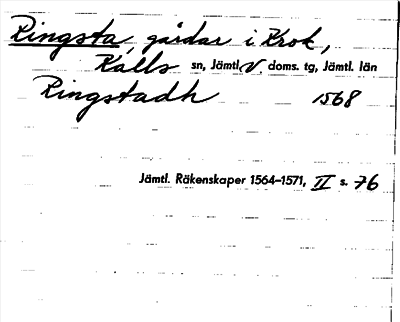 Ringsta, gårdar i Krok,
Kalls sn, Jämtl. V. doms. tg, Jämtl. län
Ringstadh 1568
Jämtl. Räkenskaper 1564-1571, II s. 76